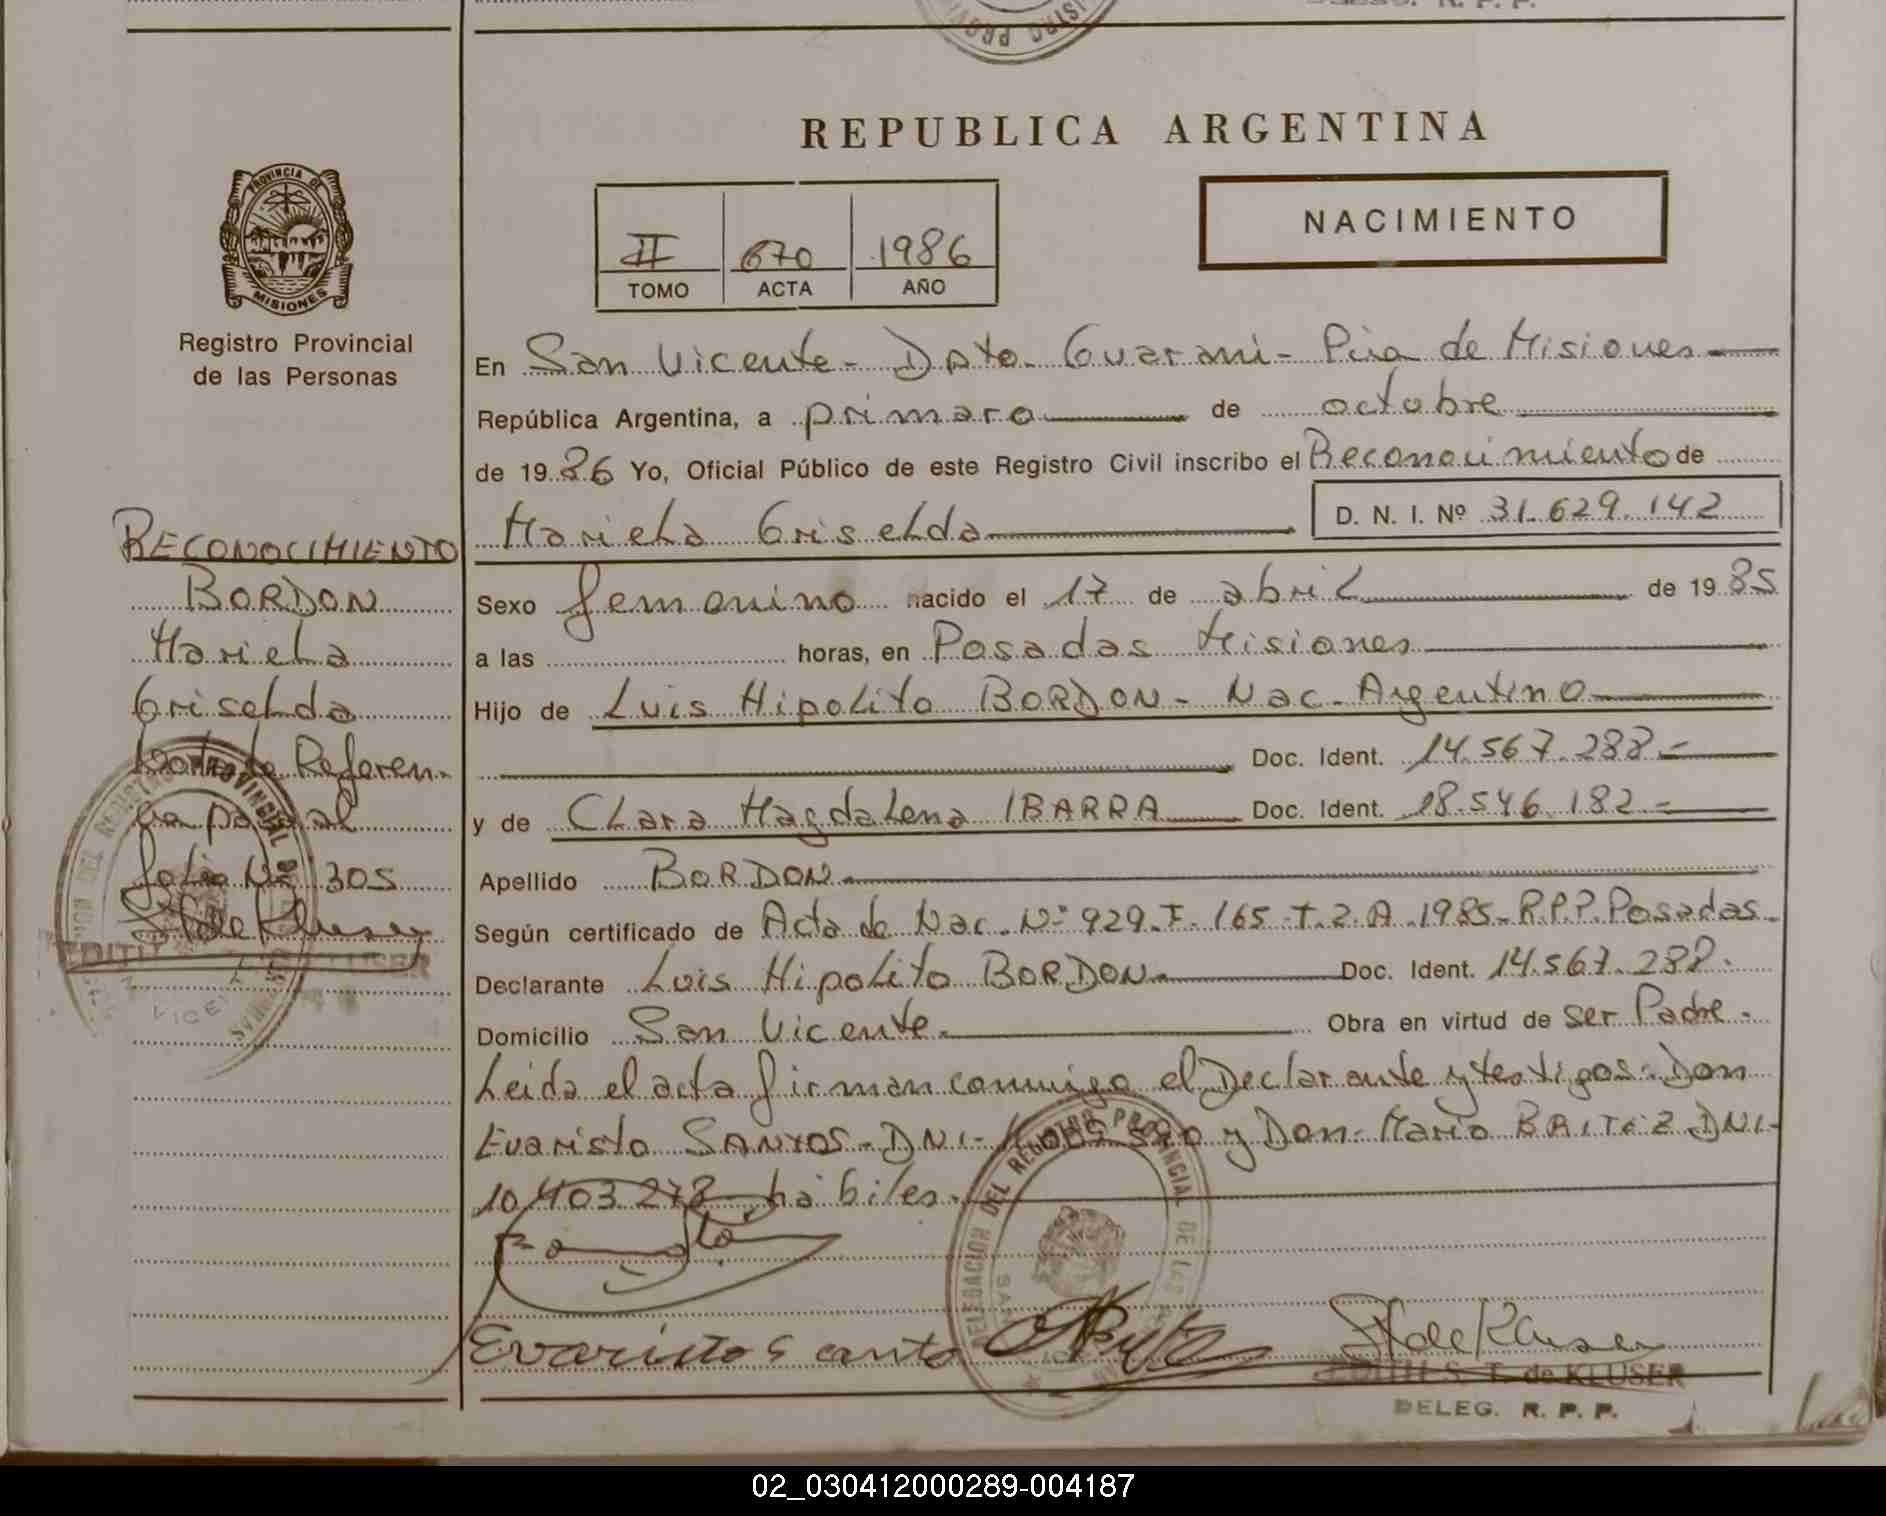 REPUBLICA ARGENTINA
PROVINCIA DE
MISIONES
Registro Provincial
de las Personas
II 670 1986
TOMO ACTA AÑO
NACIMIENTO
En San Vicente - Dpto. Guarani - Pcia de Misiones
República Argentina, a primero de octubre
de 1986 Yo, Oficial Público de este Registro Civil inscribo el Reconocimiento de
Mariela Griselda D. N. I. Nº 31.629.142
Sexo femenino nacido el 17 de abril de 1985
a las horas, en Posadas Misiones
Hijo de Luis Hipolito BORDON - Nac. Argentino
Doc. Ident. 14.567.288 -
y de Clara Magdalena IBARRA Doc. Ident. 18.546.182 -
Apellido BORDON
Según certificado de Acta de Nac. Nº 929. F. 165 T. 2. A. 1985 - R.P.P. Posadas -
Declarante Luis Hipolito BORDON Doc. Ident. 14.567.288.
Domicilio San Vicente. Obra en virtud de ser Padre.
Leida el acta firman conmigo el Declarante y testigos: Don
Evaristo SANTOS - DNI - y Don Mario BAITEZ DNI -
10.403.278 - hábiles.
RECONOCIMIENTO
BORDON
Mariela
Griselda
Nota de Referen-
cia paternal
folio Nº 305
EDITH KLUSER
EDITH S. T. de KLUSER
DELEG. R. P. P.
02_030412000289-004187